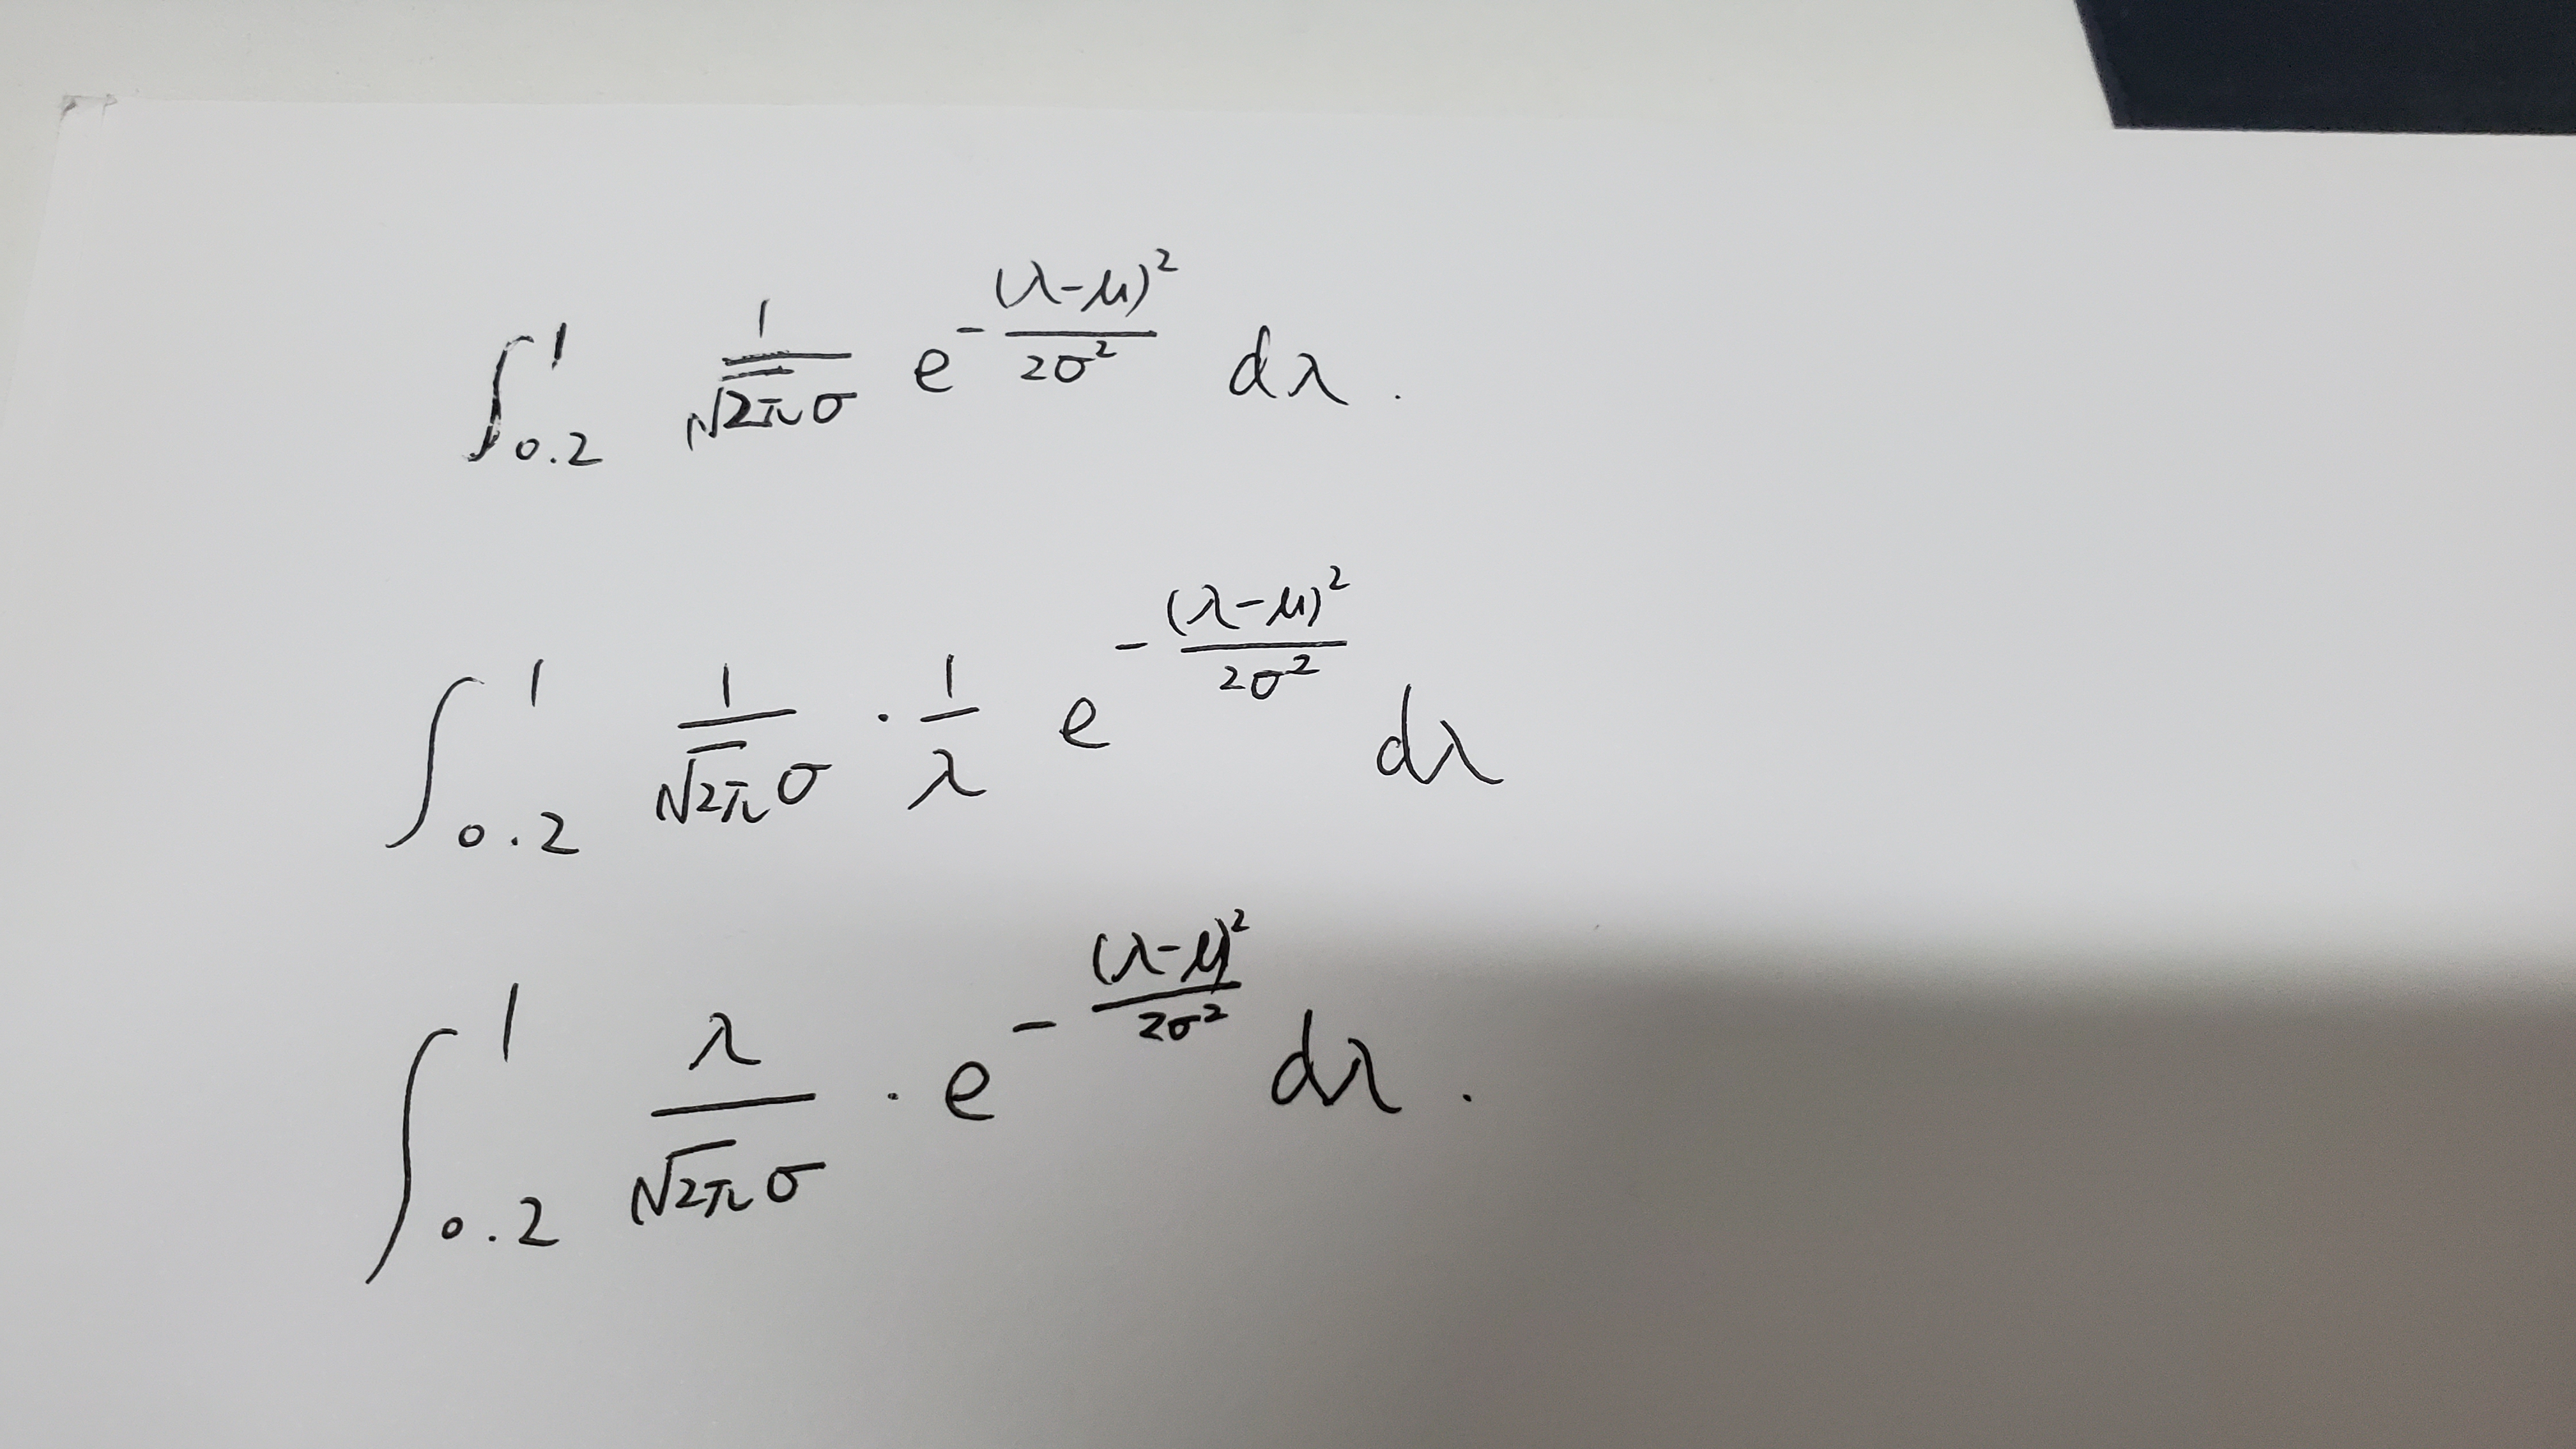 ∫_{0.2}^{1} \frac{1}{\sqrt{2π}σ} e^{-\frac{(λ-μ)^2}{2σ^2}} dλ.
∫_{0.2}^{1} \frac{1}{\sqrt{2π}σ} · \frac{1}{λ} e^{-\frac{(λ-μ)^2}{2σ^2}} dλ
∫_{0.2}^{1} \frac{λ}{\sqrt{2π}σ} · e^{-\frac{(λ-μ)^2}{2σ^2}} dλ.